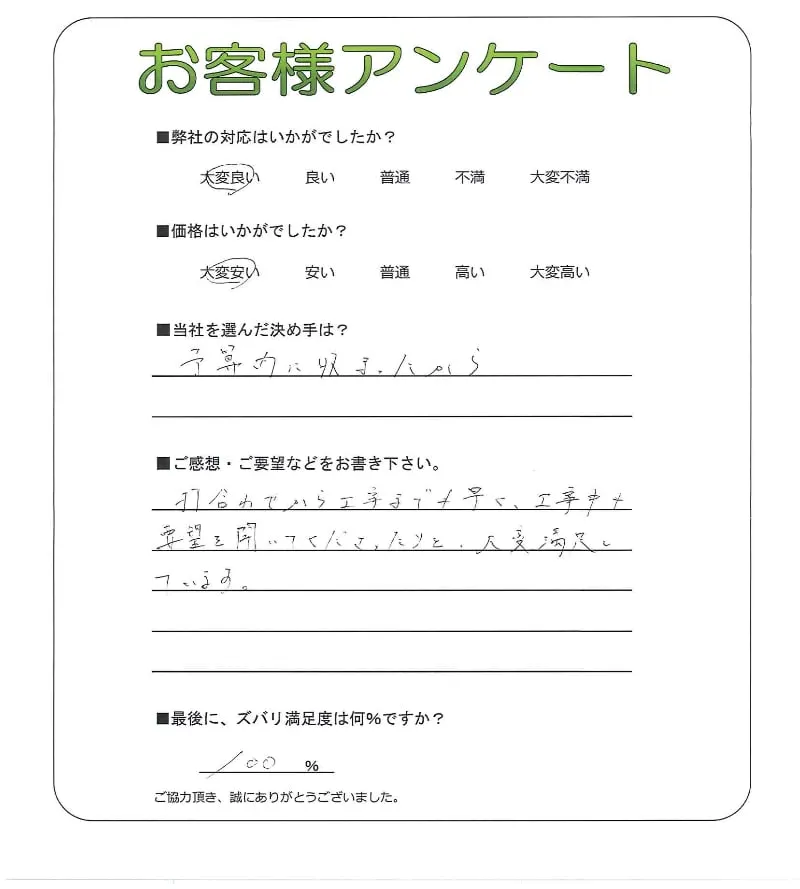 お客様アンケート
■弊社の対応はいかがでしたか？
大変良い 良い 普通 不満 大変不満
■価格はいかがでしたか？
大変安い 安い 普通 高い 大変高い
■当社を選んだ決め手は？
予算内に収まったから
■ご感想・ご要望などをお書き下さい。
打合わせから工事までも早く、工事中も
要望を聞いてくださったりと、大変満足し
ています。
■最後に、ズバリ満足度は何%ですか？
100 %
ご協力頂き、誠にありがとうございました。